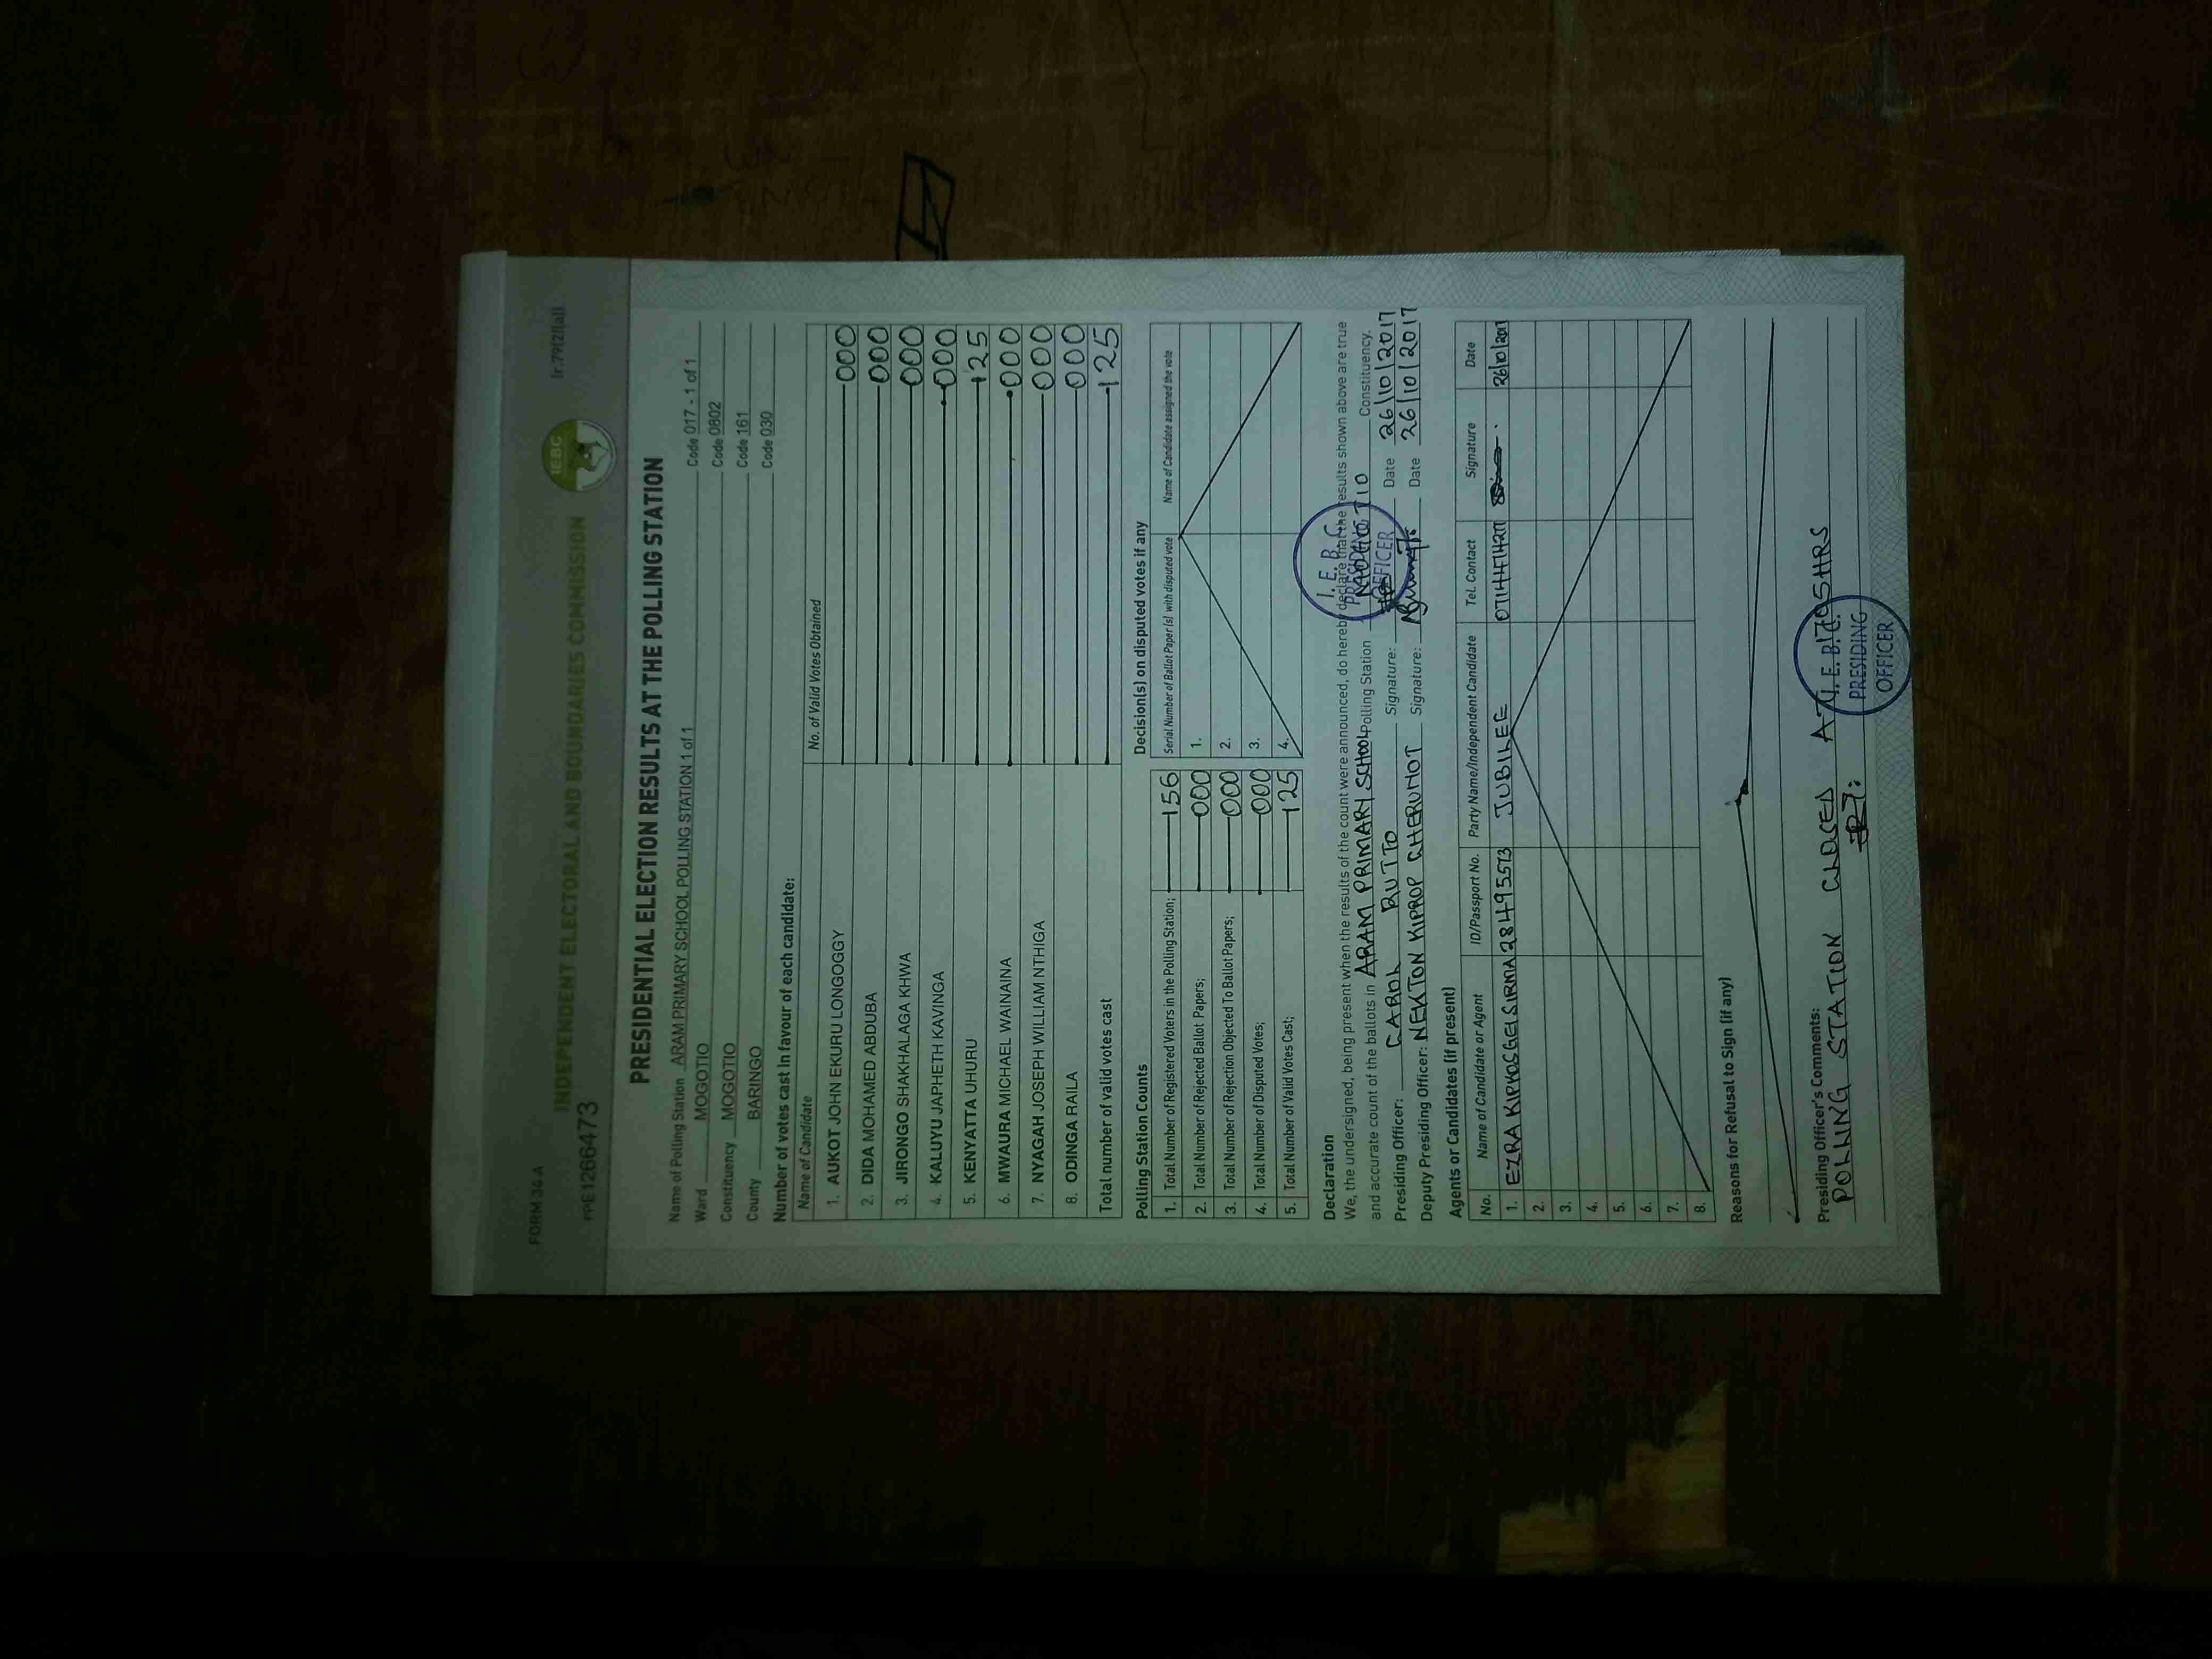 FORM 34 A
(r.79(2)(a))
INDEPENDENT ELECTORAL AND BOUNDARIES COMMISSION
IEBC
PPE1266473
PRESIDENTIAL ELECTION RESULTS AT THE POLLING STATION
Name of Polling Station ARAM PRIMARY SCHOOL POLLING STATION 1 of 1 Code 017 - 1 of 1
Ward MOGOTIO Code 0802
Constituency MOGOTIO Code 161
County BARINGO Code 030
Number of votes cast in favour of each candidate:
Name of Candidate No. of Valid Votes Obtained
1. AUKOT JOHN EKURU LONGOGGY 000
2. DIDA MOHAMED ABDUBA 000
3. JIRONGO SHAKHALAGA KHWA 000
4. KALUYU JAPHETH KAVINGA 000
5. KENYATTA UHURU 125
6. MWAURA MICHAEL WAINAINA 000
7. NYAGAH JOSEPH WILLIAM NTHIGA 000
8. ODINGA RAILA 000
Total number of valid votes cast 125
Polling Station Counts
1. Total Number of Registered Voters in the Polling Station; 156
2. Total Number of Rejected Ballot Papers; 000
3. Total Number of Rejection Objected To Ballot Papers; 000
4. Total Number of Disputed Votes; 000
5. Total Number of Valid Votes Cast; 125
Decision(s) on disputed votes if any
Serial Number of Ballot Paper (s) with disputed vote Name of Candidate assigned the vote
1.
2.
3.
4.
Declaration
We, the undersigned, being present when the results of the count were announced, do hereby declare that the results shown above are true
and accurate count of the ballots in ARAM PRIMARY SCHOOL Polling Station MOGOTIO Constituency.
Presiding Officer: CAROL RUTTO Signature: Date 26/10/2017
Deputy Presiding Officer: NEKTON KIPROP CHERUIYOT Signature: Date 26/10/2017
I. E. B. C.
PRESIDING
OFFICER
Agents or Candidates (if present)
No. Name of Candidate or Agent ID/Passport No. Party Name/Independent Candidate Tel. Contact Signature Date
1. EZRA KIPROSGEI SIRMA 28495573 JUBILEE 26/10/2017
2.
3.
4.
5.
6.
7.
8.
Reasons for Refusal to Sign (if any)
Presiding Officer's Comments:
POLLING STATION CLOSED AT 1705HRS
I. E. B. C.
PRESIDING
OFFICER